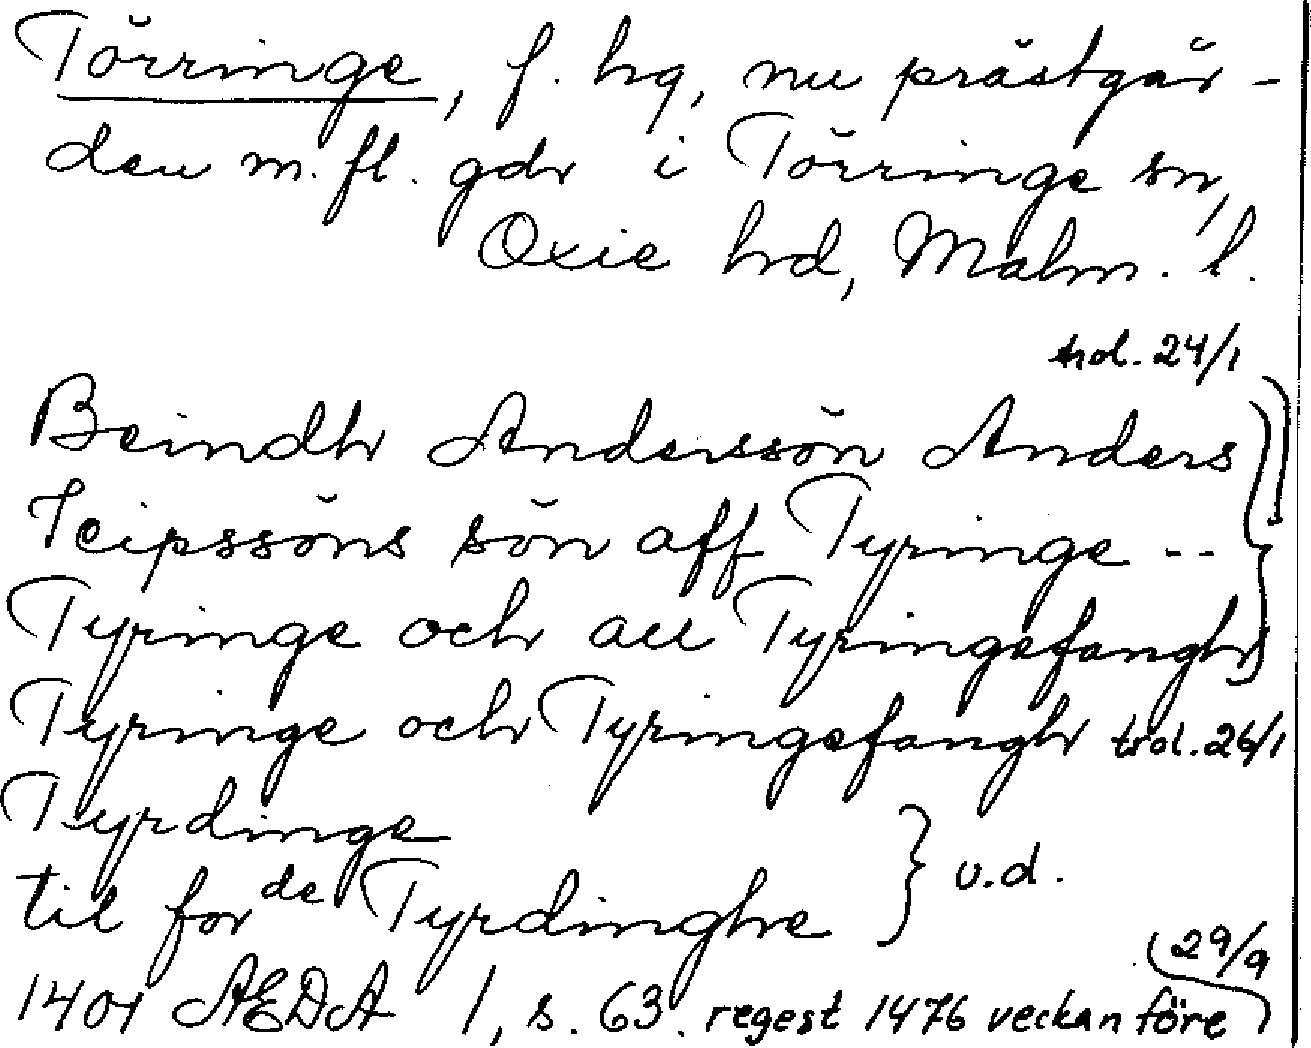 Törringe, f. hg, nu prästgår-
den m. fl. gdr i Törringe sn,
Oxie hd, Malm. l.
trol. 24/1
Beindh Anderssön Anders
Jeipssöns sön aff Tyringe --
Tyringe och all Tyringefangh
Tyringe och Tyringefangh trol. 26/1
Tyrdinge
til for de Tyrdinghe } u.d.
29/9
1401 AEDA 1, s. 63. regest 1476 veckan före